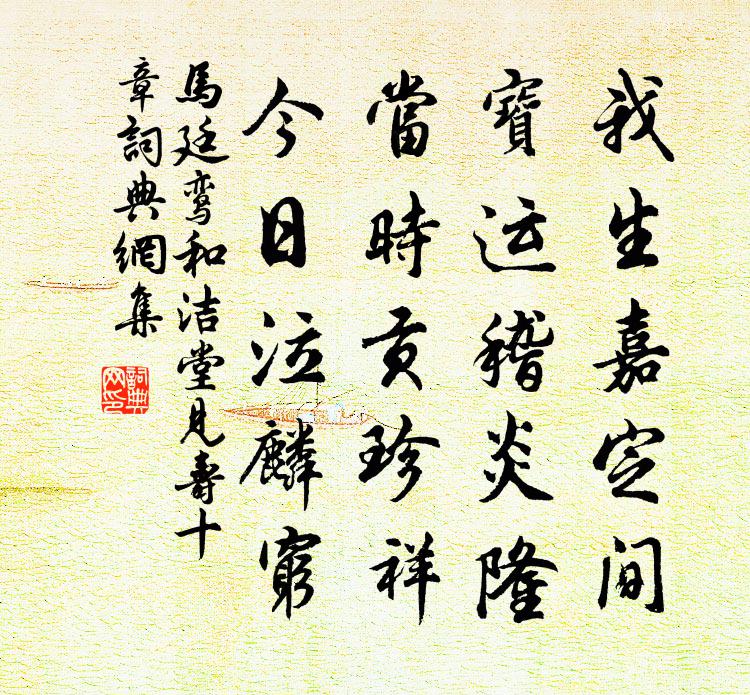 我生嘉定间
寶运稽炎隆
當時贡珍祥
今日泣麟窮
馬廷鸾和洁堂見壽十
章詞典網集
詞典
网印